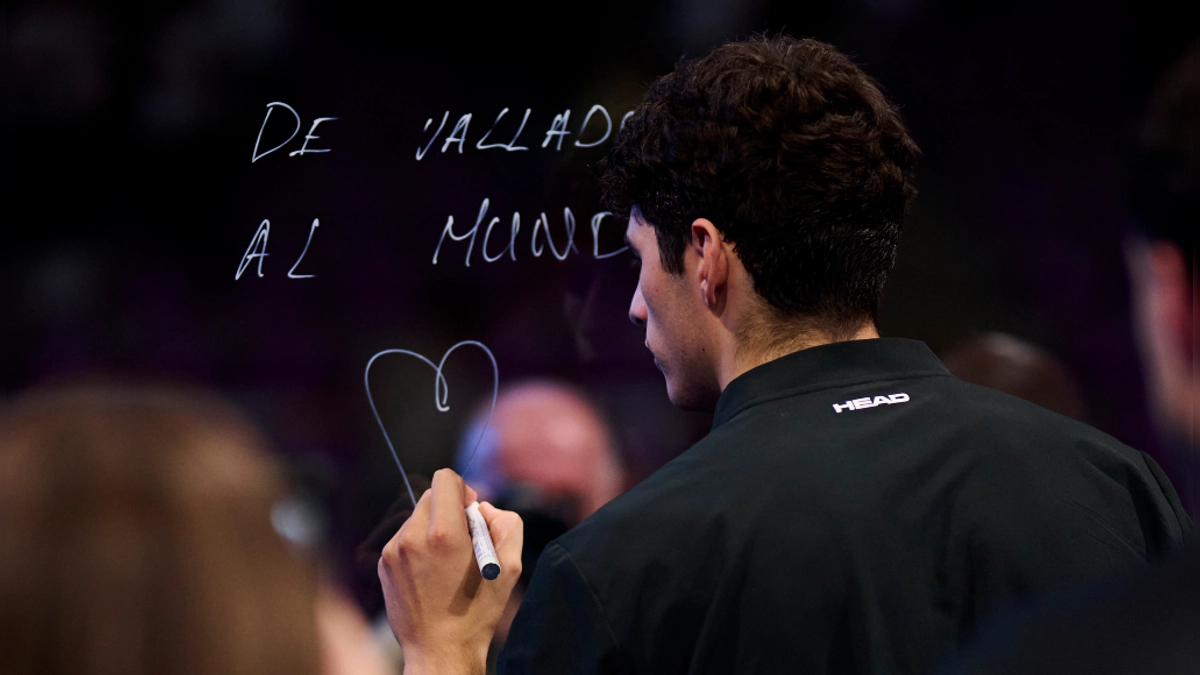 DE VALLADO
AL MUND
HEAD